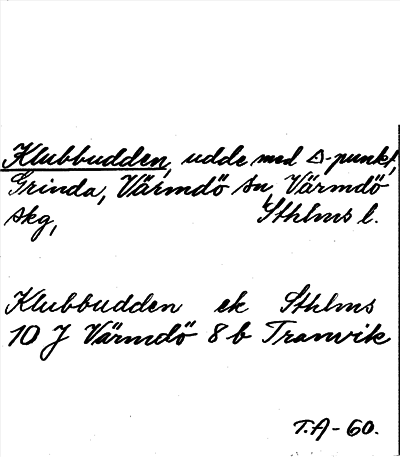 Klubbudden, udde med △-punkt,
Grinda, Värmdö sn, Värmdö
skg, Sthlms l.
Klubbudden ek Sthlms
10 J Värmdö 8 b Tranvik
T.A-60.